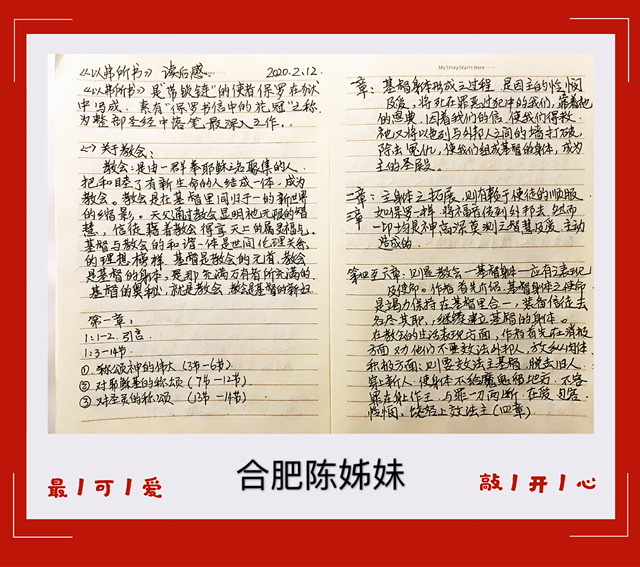 《以弗所书》读后感 2020.2.12.
《以弗所书》是"带锁链"的使者保罗在狱
中写成，素有"保罗书信中的花冠"之称.
为整部圣经中落笔最深之作..
<一> 关于教会：
教会：是由一群奉耶稣之名聚集的人.
把和睦了有新生命的人结成一体，成为
教会。教会是在基督里同归于一的新世界
的缩影。天父通过教会显明祂无限的智
慧，信徒藉着教会得享天上的属灵福气。
基督与教会的和谐一体是世间伦理关系
的理想榜样，基督是教会的元首，教会
是基督的身体，是那充满万有者所充满的.
基督的奥秘，就是教会，教会是基督的新妇
第一章：
1:1-2. 引言.
1:3-14节.
① 称颂神的伟大 (3节-6节)
② 对耶稣基督的称颂 (7节-12节)
③ 对圣灵的称颂 (13节-14节)
My Story Starts Here
二章：基督身体形成之过程. 是因主的怜悯
及爱，将死在罪恶过犯中的我们，靠着祂
的恩典，因着我们的信，使我们得救.
祂又将以色列与外邦人之间的墙打破
除去冤仇，使我们组成基督的身体，成为
主的圣殿。
三章：主身体之拓展，则有赖于使徒的顺服
如保罗一样，将福音传到外邦去，然而
一切均是神高深莫测之智慧及爱，主动
造成的.
第四至六章：则重教会—基督身体—应有之表现
及使命。作者首先介绍，基督身体之使命
是竭力保持在基督里合一，装备信徒去
各尽其职，继续建立基督的身体。
在教会的生活表现方面，作者首先在消极
方面对他们不要效法外邦人，放纵肉体.
积极方面，则要效法主基督，脱去旧人
穿上新人，使身体不给魔鬼留地方，不容
罪在身作王，与罪一刀两断，在爱、包容、
怜悯、饶恕上效法主 (四章)
合肥陈姊妹
最 | 可 | 爱
敲 | 开 | 心